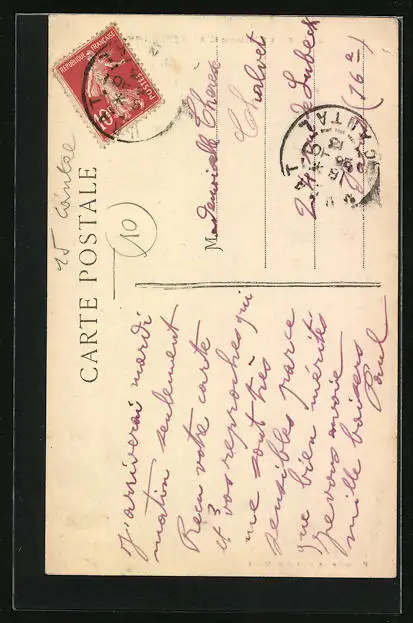 CARTE POSTALE
15 Cantal
10
REPUBLIQUE FRANÇAISE
POSTES
10
J'arriverai mardi
matin seulement
Reçu votre carte
et vos reproches qui
me sont très
sensibles parce
que bien mérités
Je vous envoie
mille baisers
Paul
Mademoiselle Thérèse
Chalvet
24 Rue de Lubeck
(16e)
CANTAL